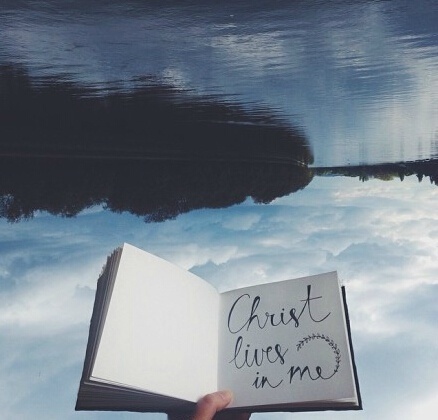 Christ
lives
in me